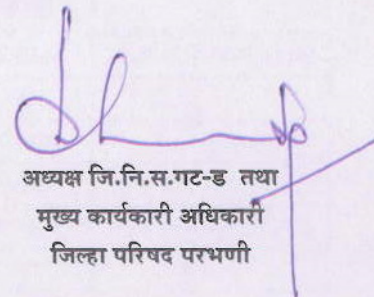 अध्यक्ष जि.नि.स.गट-ड तथा
मुख्य कार्यकारी अधिकारी
जिल्हा परिषद परभणी